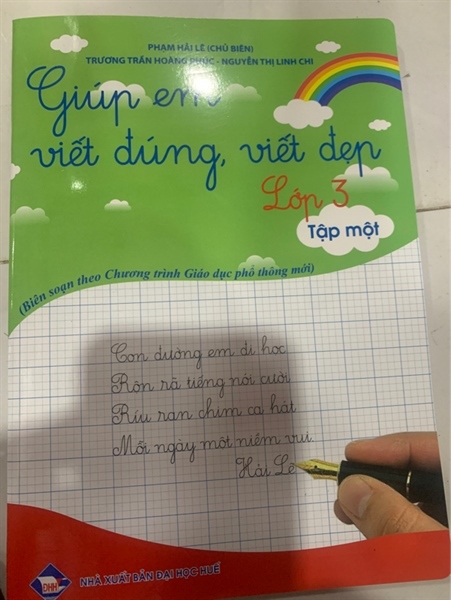 PHẠM HẢI LÊ (CHỦ BIÊN)
TRƯƠNG TRẦN HOÀNG PHÚC - NGUYỄN THỊ LINH CHI
Giúp em
viết đúng, viết đẹp
Lớp 3
Tập một
(Biên soạn theo Chương trình Giáo dục phổ thông mới)
Con đường em đi học
Rộn rã tiếng nói cười
Ríu ran chim ca hát
Mỗi ngày một niềm vui
Hải Lê
ĐHH
NHÀ XUẤT BẢN ĐẠI HỌC HUẾ